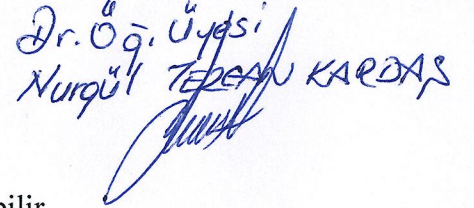 Dr. Öğ. Üyesi
Nurgül TERCAN KARDAŞ
bilir